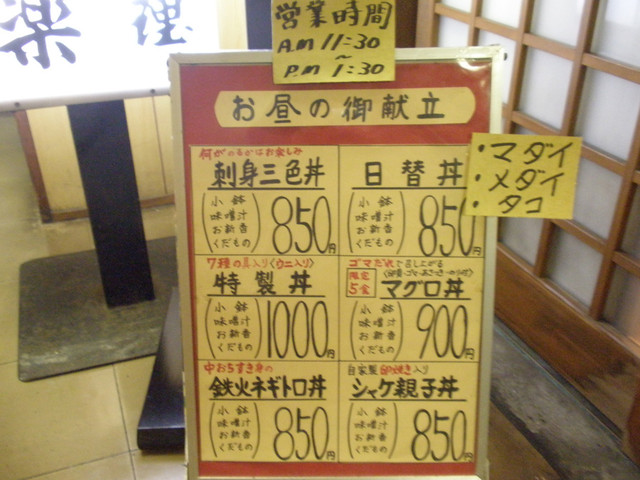 楽
理
営業時間
A.M 11:30
~
P.M 1:30
お昼の御献立
何がのるかはお楽しみ
刺身三色丼
小鉢
味噌汁
お新香
くだもの
850円
日替丼
小鉢
味噌汁
お新香
くだもの
850円
・マダイ
・メダイ
・タコ
7種の具入り(ウニ入り)
特製丼
小鉢
味噌汁
お新香
くだもの
1000円
ゴマだれで召し上がる
限定
5食
マグロ丼
小鉢
味噌汁
お新香
くだもの
900円
中おちすき身の
鉄火ネギトロ丼
小鉢
味噌汁
お新香
くだもの
850円
自家製卵焼き入り
シャケ親子丼
小鉢
味噌汁
お新香
くだもの
850円